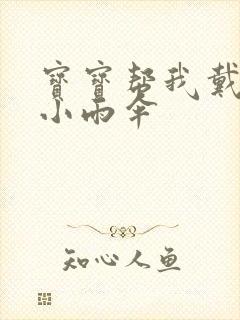 寶寶帮我戴
小雨伞
知心人鱼